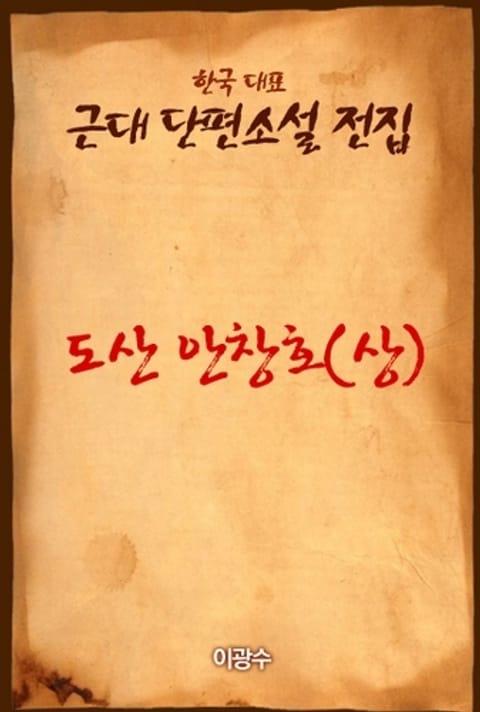 한국 대표
근대 단편소설 전집
도산 안창호(상)
이광수